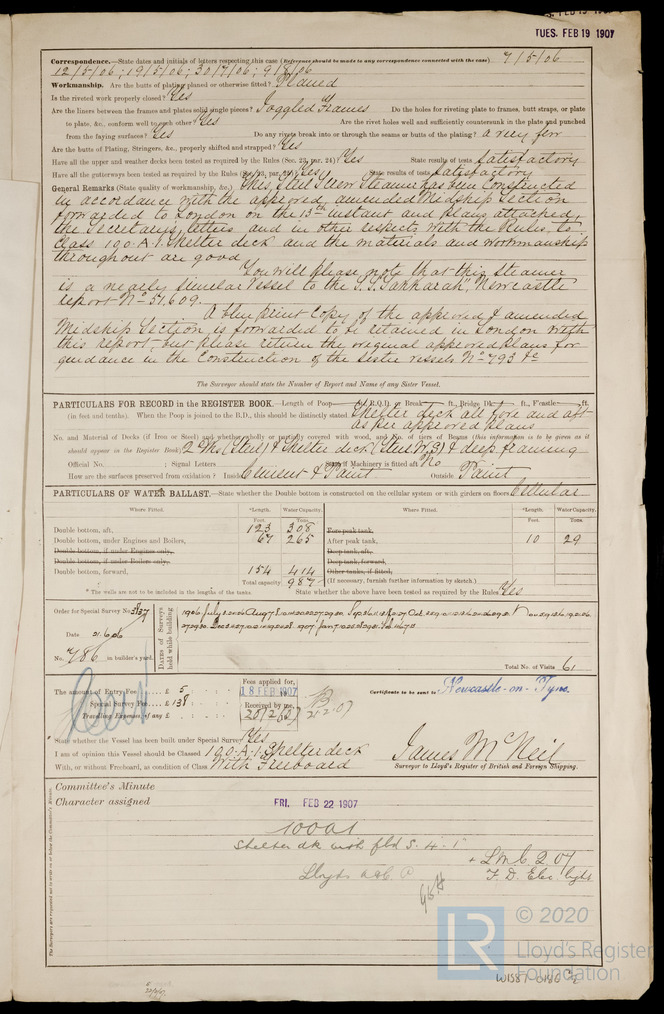 TUES. FEB 19 1907
Correspondence.—State dates and initials of letters respecting this case (Reference should be made to any correspondence connected with the case) 7/5/06
12/5/06; 19/5/06; 30/7/06; 9/8/06
Workmanship. Are the butts of plating planed or otherwise fitted? Planed
Is the riveted work properly closed? Yes
Are the liners between the frames and plates solid single pieces? Joggled Frames Do the holes for riveting plate to frames, butt straps, or plate
to plate, &c., conform well to each other? Yes Are the rivet holes well and sufficiently countersunk in the plate and punched
from the faying surfaces? Yes Do any rivets break into or through the seams or butts of the plating? a very few
Are the butts of Plating, Stringers, &c., properly shifted and strapped? Yes
Have all the upper and weather decks been tested as required by the Rules (Sec. 23, par. 24)? Yes State results of tests Satisfactory
Have all the gutterways been tested as required by the Rules Yes State results of tests Satisfactory
General Remarks (State quality of workmanship, &c.) This Steel Screw Steamer has been Constructed
in accordance with the approved, amended Midship Section
forwarded to London on the 13th instant and plans attached,
the Secretary's letters and in other respects with the Rules, to
Class 100.A.1. Shelter deck and the materials and workmanship
throughout are good
You will please note that this steamer
is a nearly similar vessel to the S.S. "Sakkarah", Newcastle
report No 51,609.
A blue print Copy of the approved & amended
Midship Section, is forwarded to be retained in London with
this report, but please return the original approved plans for
guidance in the Construction of the sister vessels No 793 &c
The Surveyor should state the Number of Report and Name of any Sister Vessel.
PARTICULARS FOR RECORD in the REGISTER BOOK.—Length of Poop ft., R.Q.D. or Break ft., Bridge Dk. ft., F'castle ft.
(in feet and tenths). When the Poop is joined to the B.D., this should be distinctly stated Shelter deck all fore and aft
as per approved plans
No. and Material of Decks (if Iron or Steel) and whether wholly or partially covered with wood, and No. of tiers of Beams (this information is to be given as it
should appear in the Register Book) 2 Dks (Steel) & Shelter deck (Steel) & deep framing
Official No. ; Signal Letters if Machinery is fitted aft No
How are the surfaces preserved from oxidation? Inside Cement & Paint Outside Paint
PARTICULARS OF WATER BALLAST.—State whether the Double bottom is constructed on the cellular system or with girders on floors Cellular
Where Fitted. *Length. Water Capacity. Where Fitted. *Length. Water Capacity.
Feet. Tons. Feet. Tons.
Double bottom, aft, 123 308 Fore peak tank,
Double bottom, under Engines and Boilers, 67 265 After peak tank, 10 29
Double bottom, if under Engines only, Deep tank, aft,
Double bottom, if under Boilers only, Deep tank, forward,
Double bottom, forward, 154 414 Other tanks, if fitted,
Total capacity 987 (If necessary, furnish further information by sketch.)
* The wells are not to be included in the lengths of the tanks. State whether the above have been tested as required by the Rules Yes
Order for Special Survey No. 3137
Date 21.6.06
No. 786 in builder's yard.
Dates of Surveys held while building
Total No. of Visits 61
The amount of Entry Fee £ 5 Fees applied for, 18 FEB 1907
Special Survey Fee £ 138 Received by me,
Travelling Expenses, if any £
21.2.07
Certificate to be sent to Newcastle-on-Tyne.
State whether the Vessel has been built under Special Survey Yes
I am of opinion this Vessel should be Classed 100.A.1. Shelter deck
With, or without Freeboard, as condition of Class With Freeboard
James McNeil
Surveyor to Lloyd's Register of British and Foreign Shipping.
Committee's Minute
Character assigned FRI. FEB 22 1907
100A1
Shelter dk with fbd
+ LMC 2.07
F.D. Elec. light
Lloyds A&C P
The Surveyors are requested not to write on or below the Committee's Minute.
LR
© 2020
Lloyd's Register
Foundation
W1587-0186